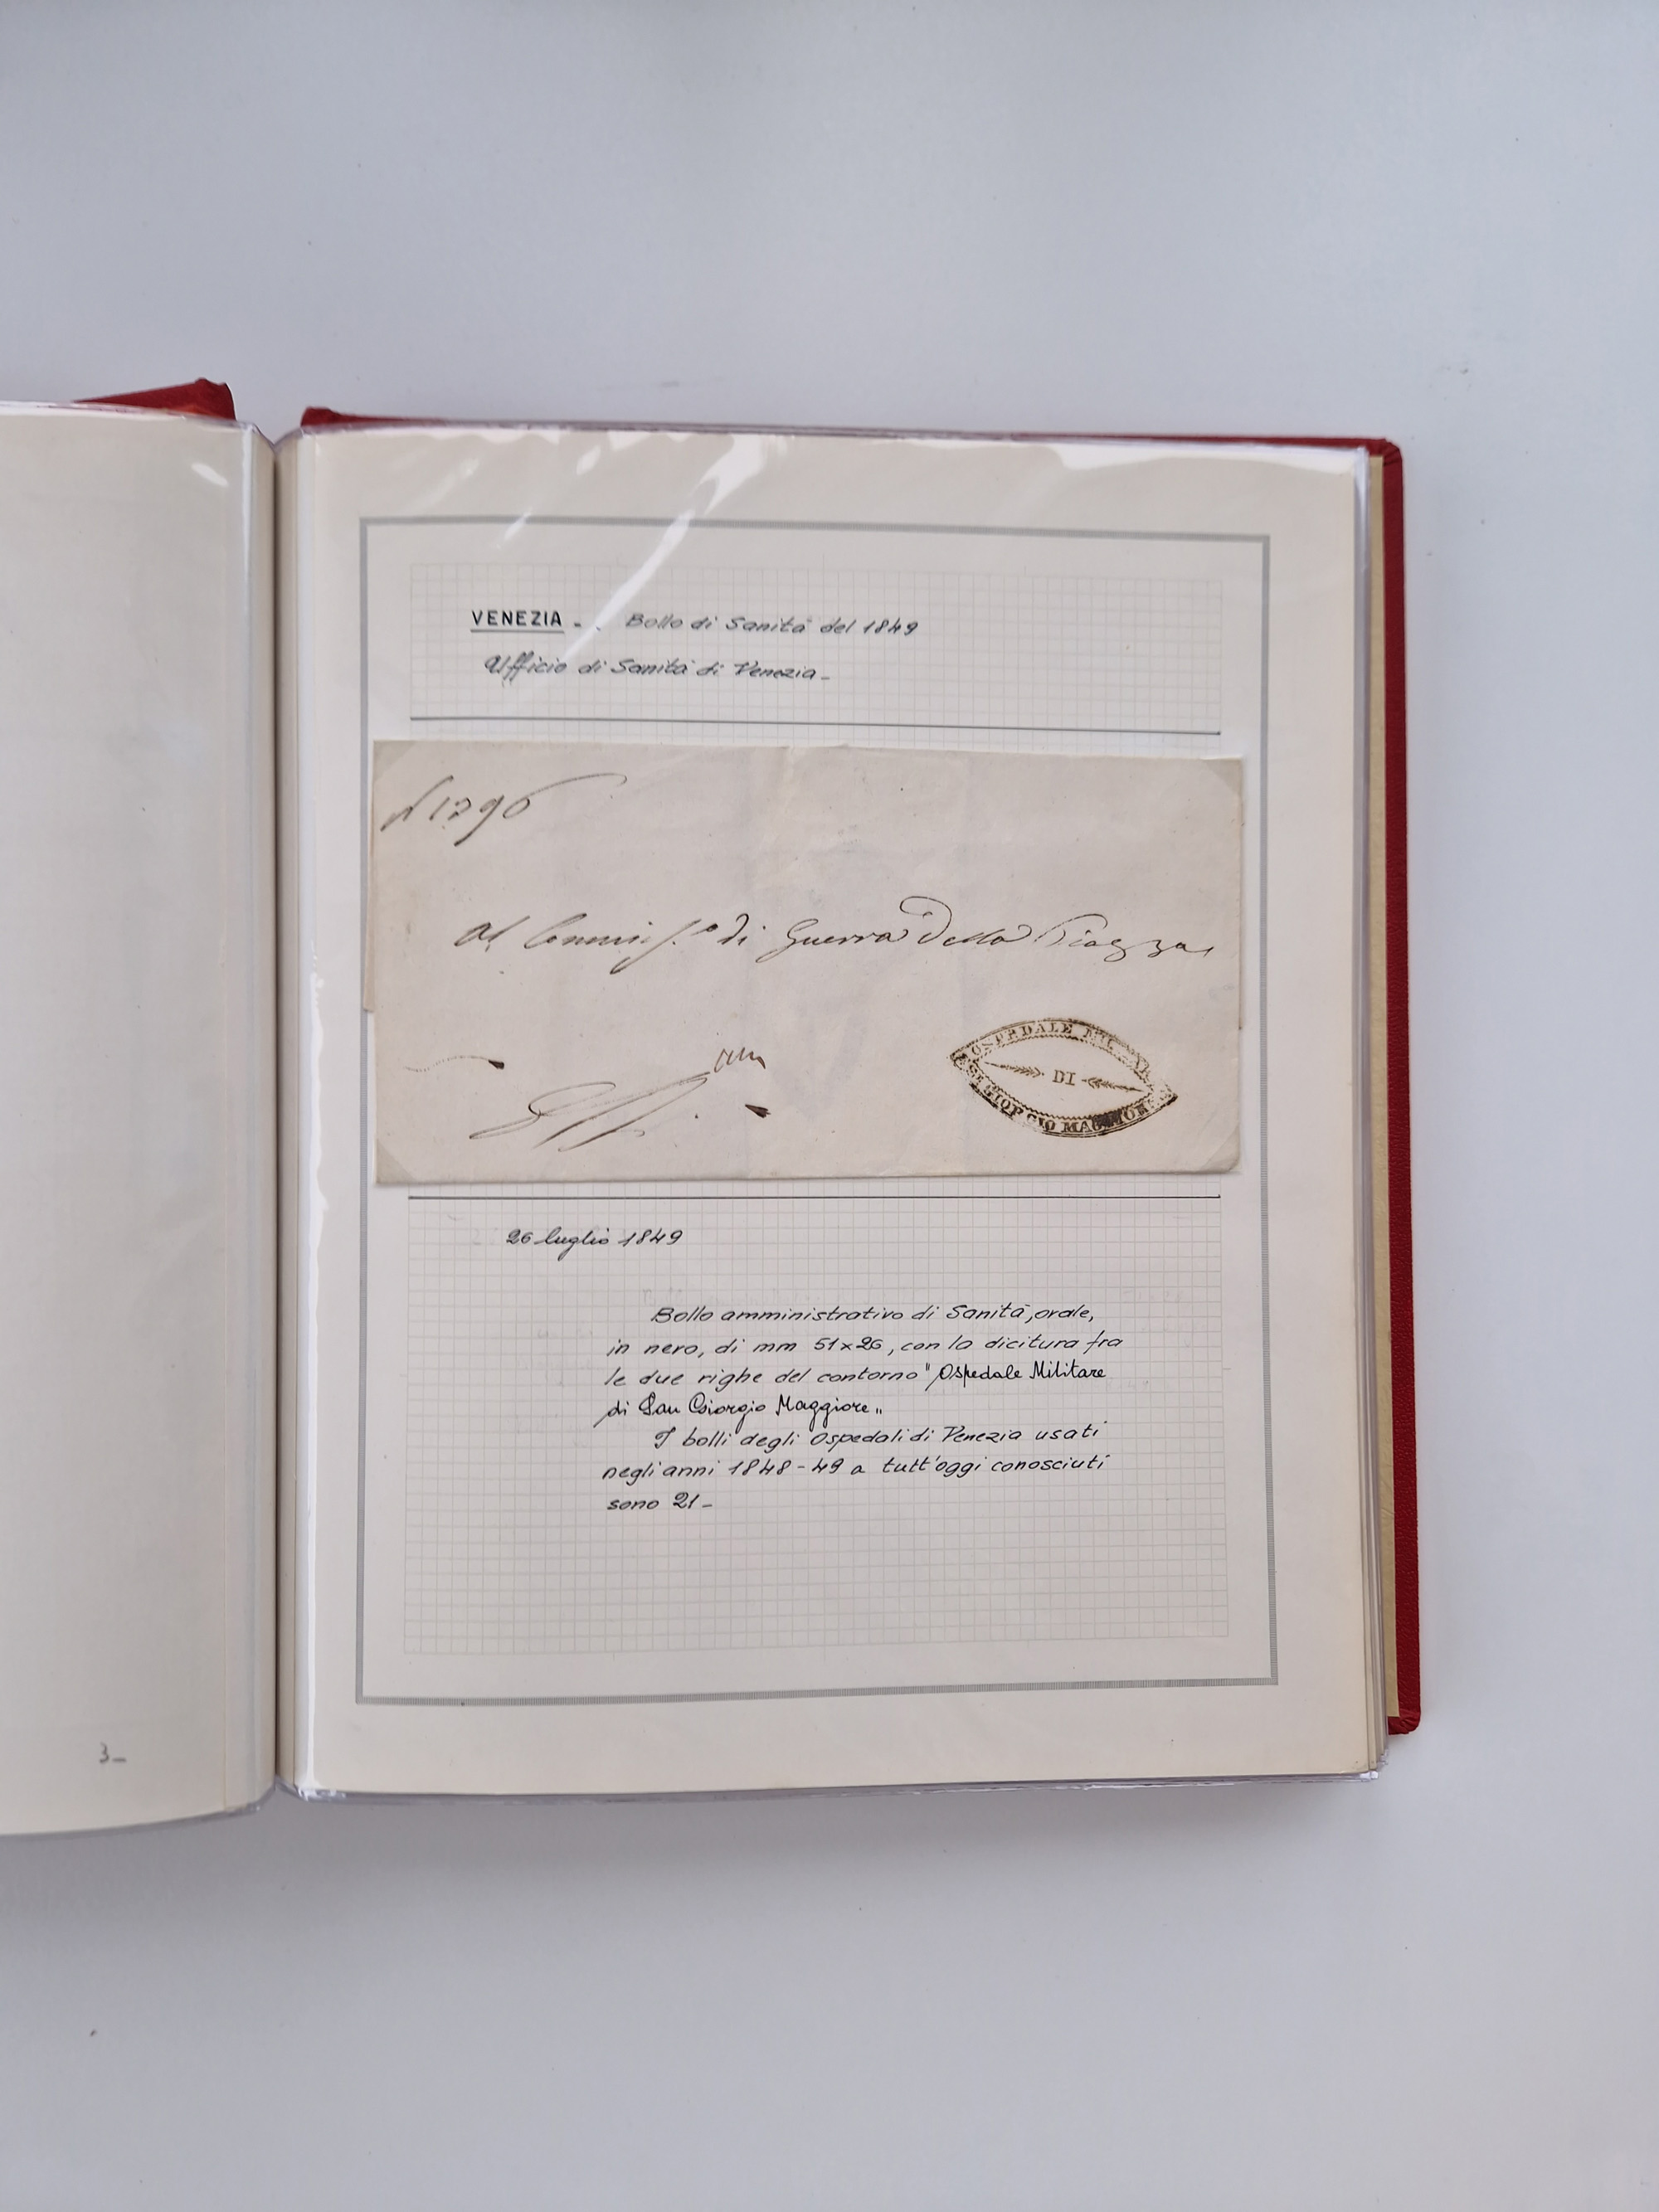 VENEZIA - Bollo di Sanità del 1849
Ufficio di Sanità di Venezia -
N 1296
Al Commiss.o di Guerra della Piazza
OSPEDALE MIL
DI
S. GIORGIO MAGGIORE
26 luglio 1849
Bollo amministrativo di Sanità, ovale,
in nero, di mm 51x26, con la dicitura fra
le due righe del contorno "Ospedale Militare
di San Giorgio Maggiore"
I bolli degli Ospedali di Venezia usati
negli anni 1848-49 a tutt'oggi conosciuti
sono 21 -
3 -